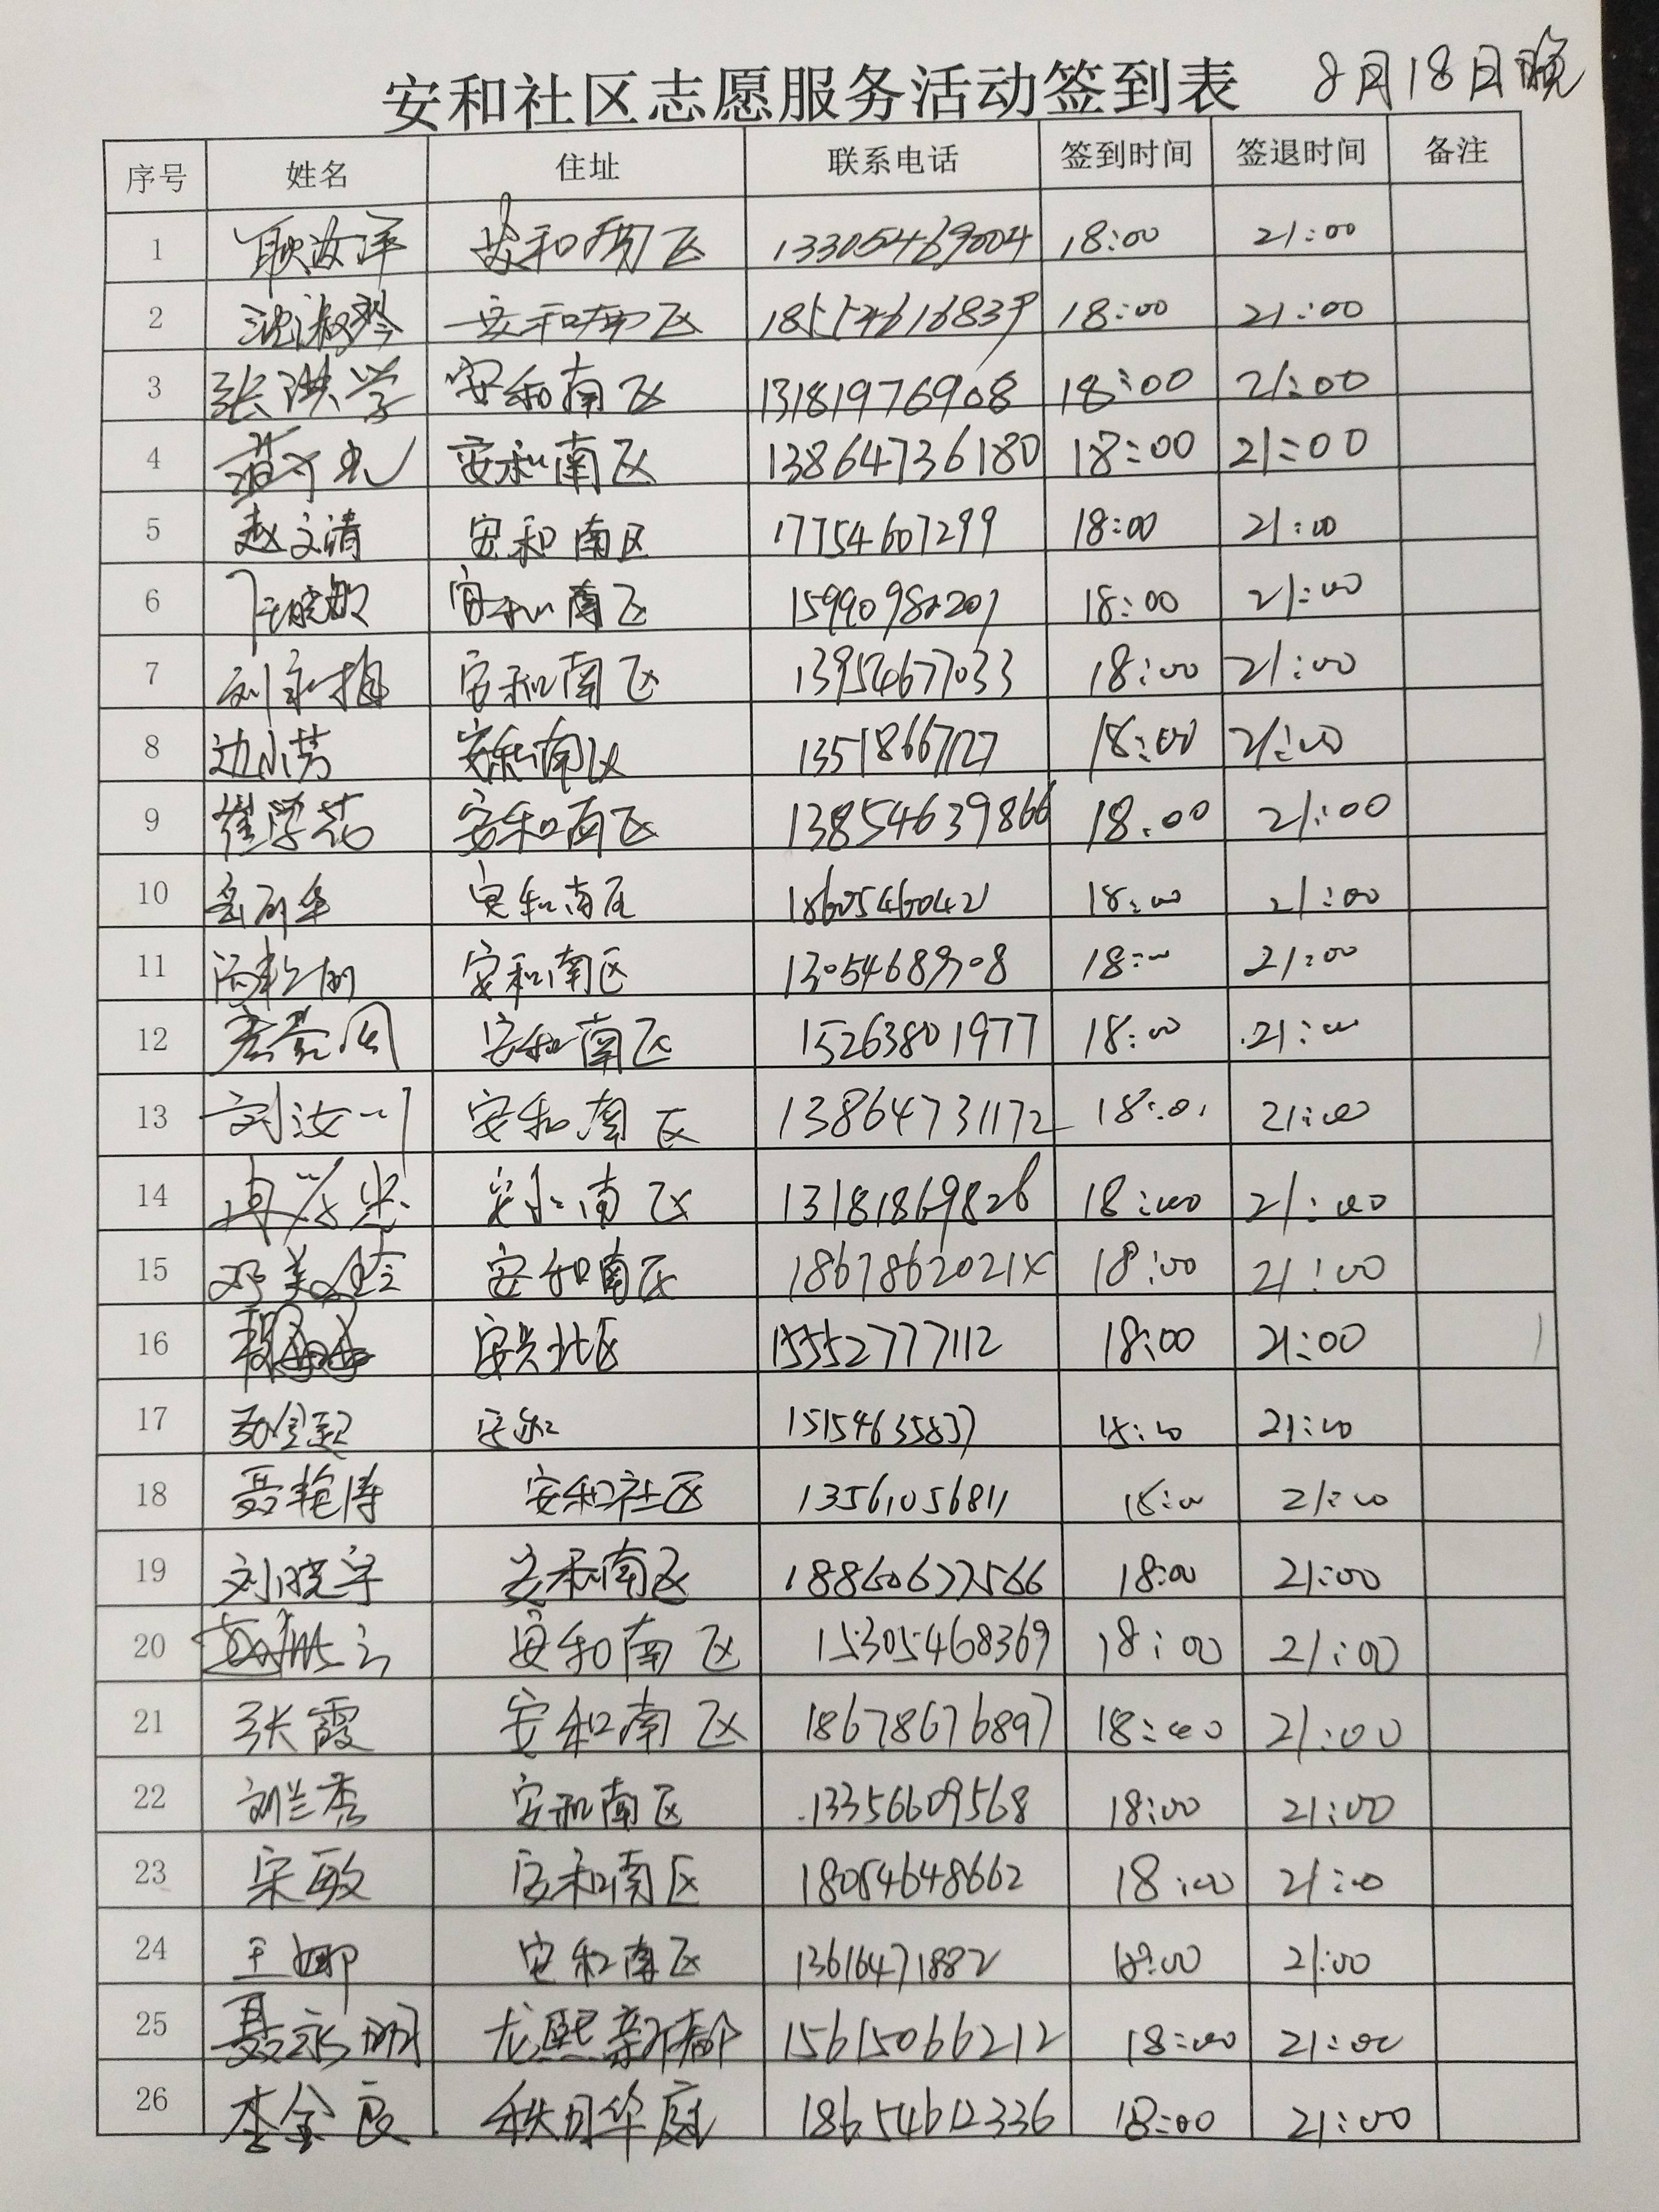 安和社区志愿服务活动签到表 8月18日晚
序号 姓名 住址 联系电话 签到时间 签退时间 备注
1 耿汝洋 安和南区 13305469004 18:00 21:00
2 沈淑琴 安和南区 18554616839 18:00 21:00
3 张洪学 安和南区 13181976908 18:00 21:00
4 安和南区 13864736180 18:00 21:00
5 赵文清 安和南区 17754607299 18:00 21:00
6 安和南区 18:00 21:00
7 安和南区 13954677033 18:00 21:00
8 边小芳 安和南区 18:00 21:00
9 崔学花 安和南区 13854639866 18:00 21:00
10 安和南区 18605460421 18:00 21:00
11 安和南区 13054689708 18:00 21:00
12 安和南区 15263801977 18:00 21:00
13 刘汝川 安和南区 13864731172 18:00 21:00
14 安和南区 13181869826 18:00 21:00
15 邓美玲 安和南区 18:00 21:00
16 安兴北区 15552777112 18:00 21:00
17 安和 15154635837 18:00 21:00
18 聂艳涛 安和社区 13561056811 18:00 21:00
19 刘晓宇 安和南区 18860677566 18:00 21:00
20 安和南区 15305468369 18:00 21:00
21 张霞 安和南区 18678676897 18:00 21:00
22 刘兰秀 安和南区 13356609568 18:00 21:00
23 宋敏 安和南区 18054648662 18:00 21:00
24 王娜 安和南区 13616471882 18:00 21:00
25 聂永明 龙熙新都 15615066212 18:00 21:00
26 李金良 秋月华庭 18654612336 18:00 21:00